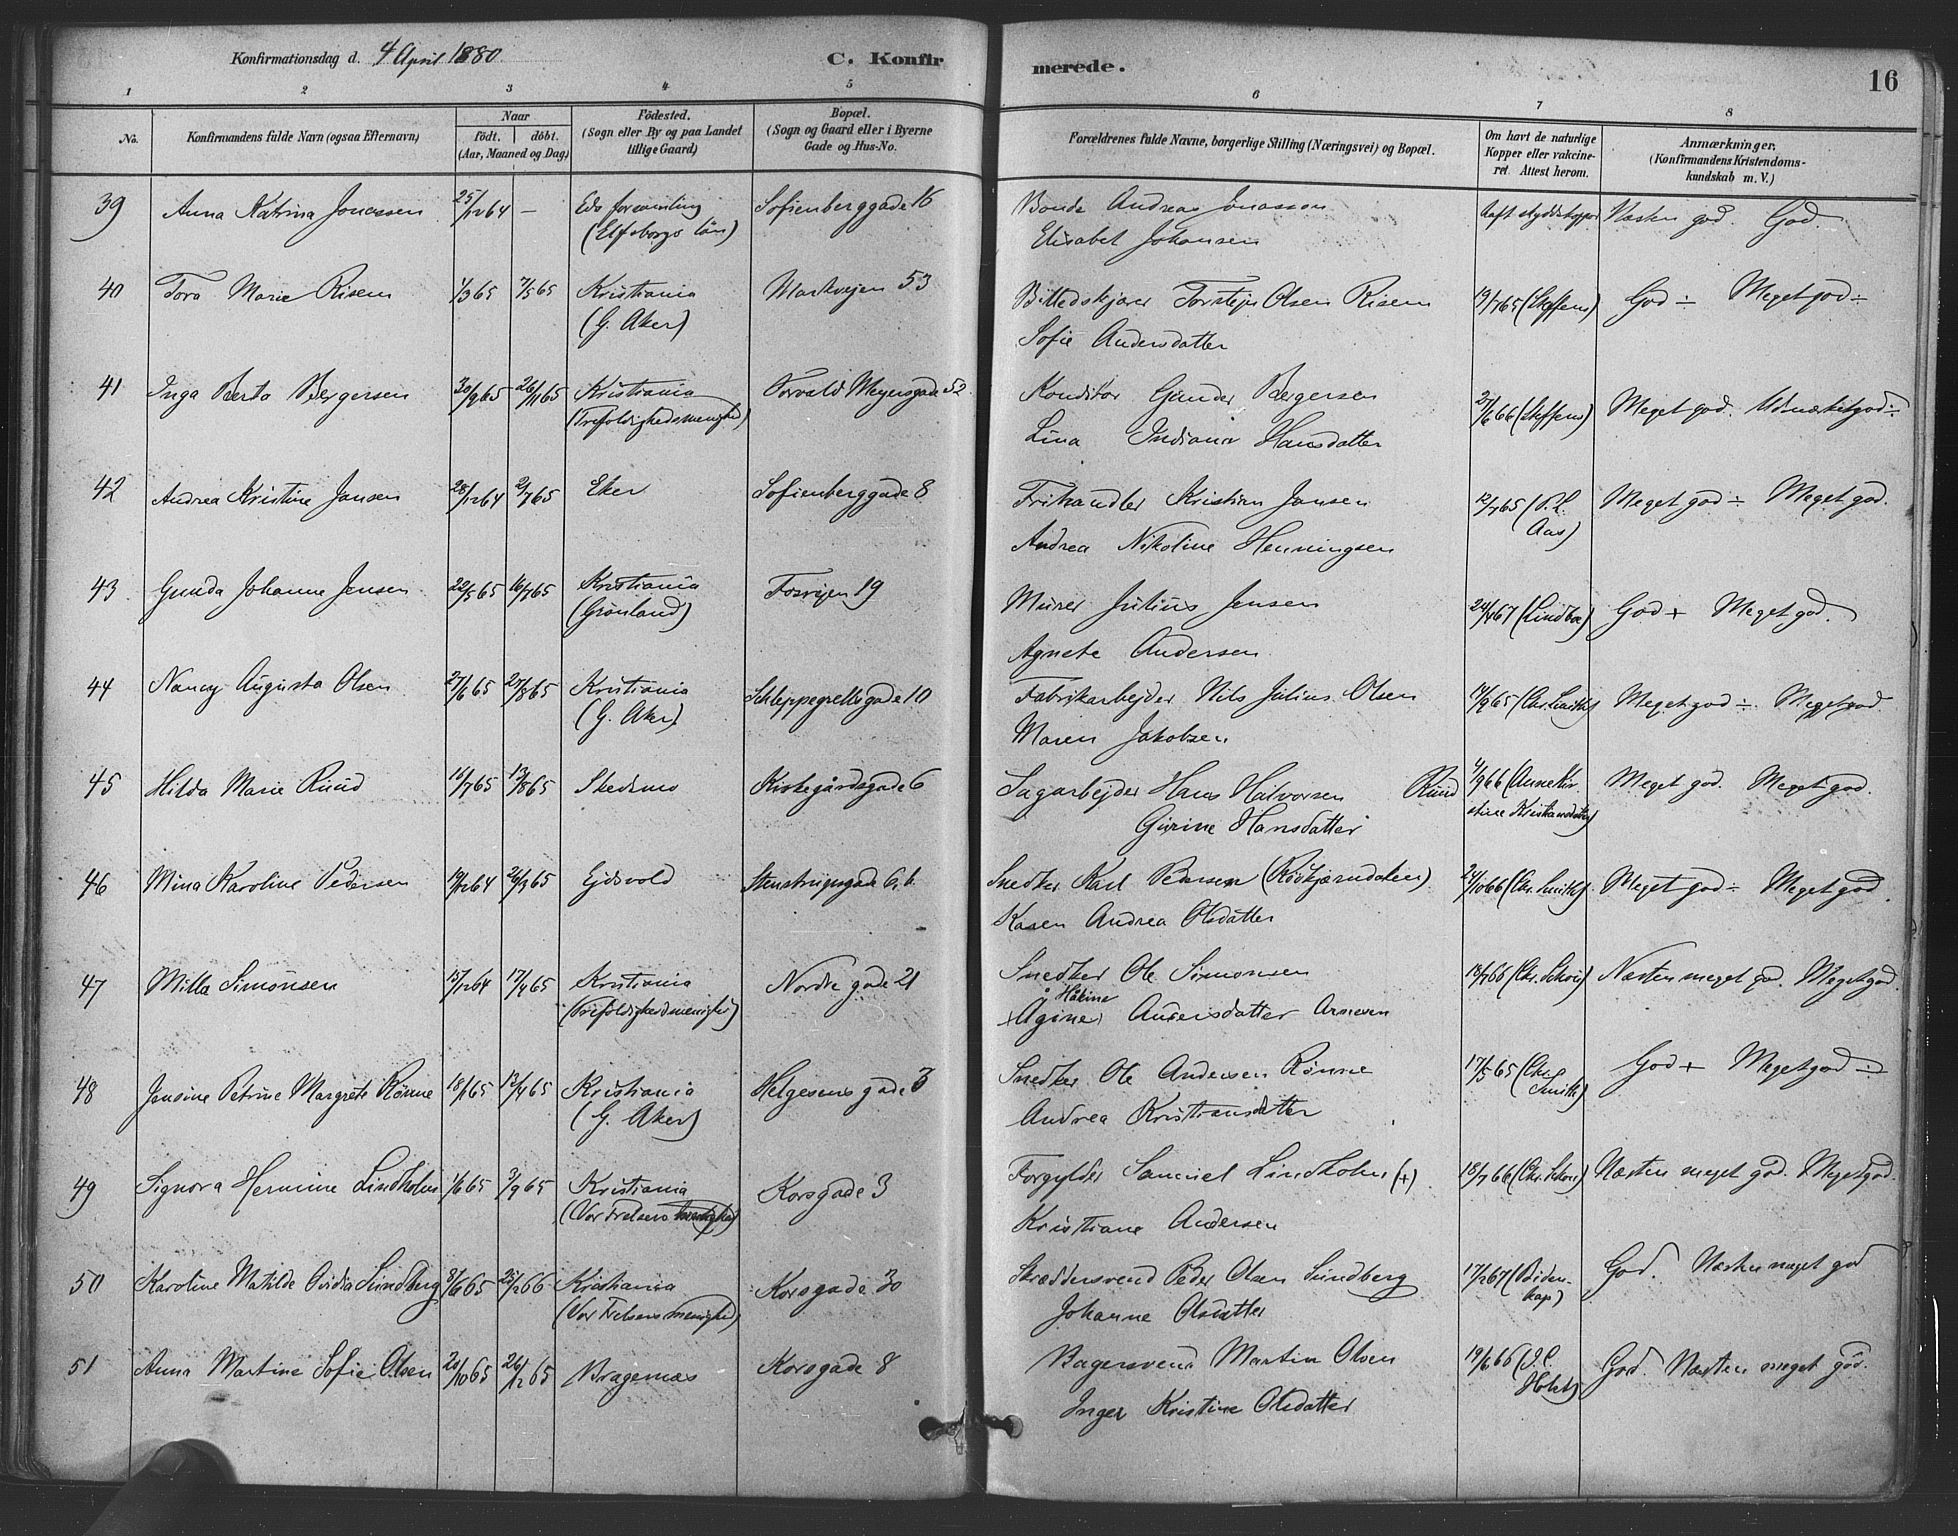 Konfirmationsdag d. 4 April 1880. C. Konfirmerede. 16
1 2 3 4 5 6 7 8
No. Konfirmandens fulde Navn (ogsaa Efternavn) Naar født. døbt. (Aar, Maaned og Dag) Födested. (Sogn eller By og paa Landet tillige Gaard) Bopæl. (Sogn og Gaard eller i Byerne Gade og Hus-No. Forældrenes fulde Navne, borgerlige Stilling (Næringsvei) og Bopæl. Om havt de naturlige Kopper eller vakcineret. Attest herom. Anmærkninger. (Konfirmandens Kristendomskundskab m. V.)
39 Anna Katrina Jonassen 25/12 64 — Eds forsamling Sofienberggade 16 Bonde Andreas Jonasson haft skyddskoppor Næsten god. God.
(Elfsborgs län) Elisabet Johansen
40 Tora Marie Risem 1/3 65 7/5 65 Kristiania Markvejen 53 Billedskjærer Torstejn Olsen Risem 19/7 65 (Steffens) God ÷ Meget god ÷
(G. Aker) Sofie Andersdatter
41 Inga Berta Bergersen 30/9 65 26/11 65 Kristiania Torvald Meyersgade 52 Konditor Gunder Bergersen 27/6 66 (Steffens) Meget god. Udmærket god ÷
(Trefoldighedsmenighed) Lina Indiana Hansdatter
42 Andrea Kristine Jansen 28/12 64 2/7 65 Eker Sofienberggade 8 Frihandler Kristian Jansen 12/7 65 (P. L. Aas) Meget god ÷ Meget god.
Andrea Nikoline Henningsen
43 Gunda Johanne Jensen 22/5 65 16/7 65 Kristiania Fosvejen 19 Murer Julius Jensen 24/4 67 (Lindboe) God + Meget god.
(Grønland) Agnete Andersen
44 Nancy Augusta Olsen 27/6 65 27/8 65 Kristiania Schleppegrellsgade 10 Fabrikarbejder Nils Julius Olsen 14/9 65 (Chr. Smith) Meget god ÷ Meget god.
(G. Aker) Maren Jakobsen
45 Hilda Marie Ruud 16/7 65 13/8 65 Skedsmo Kirkegårdsgade 6 Sagarbejder Hans Halvorsen Ruud 4/9 66 (Anne Kirstine Kristiansdatter) Meget god. Meget god.
Gurine Hansdatter
46 Mina Karoline Pedersen 19/12 64 26/3 65 Ejdsvold Stenstrupsgade 6, b Snedker Karl Pedersen 24/10 66 (Chr. Smith) Meget god ÷ Meget god.
Karen Andrea Olsdatter
47 Milla Simonsen 15/12 64 17/4 65 Kristiania Nordre gade 21 Snedker Ole Simonsen 18/7 66 (Chr. Schou) Næsten meget god. Meget god.
(Trefoldighedsmenighed) (Agine) Håkine Andersdatter Arnesen
48 Jensine Petrine Margrete Rønne 18/1 65 17/4 65 Kristiania Helgesens gade 3 Snedker Ole Andersen Rønne 17/5 65 (Chr. Smith) God + Meget god ÷
(G. Aker) Andrea Kristiansdatter
49 Signora Hermine Lindholm 1/6 65 3/9 65 Kristiania Korsgade 3 Forgylder Samuel Lindholm (+) 18/7 66 (Chr. Schou) Næsten meget god. Meget god.
(Vor Frelsers menighed) Kristiane Andersen
50 Karoline Matilde Ovidia Lundberg 3/6 65 25/2 66 Kristiania Korsgade 30 Skræddersvend Peder Olsen Lundberg 17/2 67 (Bidenkap) God. Næsten meget god
(Vor Frelsers menighed) Johanne Olsdatter
51 Anna Martine Sofie Olsen 20/10 65 26/12 65 Bragernæs Korsgade 8 Bagersvend Martin Olsen 19/6 66 (J. C. Holst) God. Næsten meget god.
Inger Kristine Olsdatter